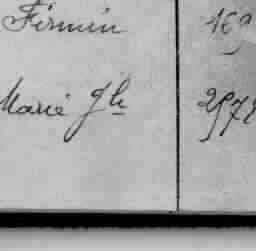 Firmin 169
Marie Jh 2978